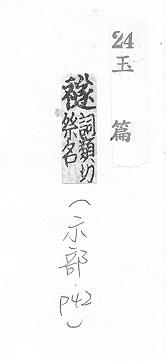 24
玉篇
禭
詞類切
祭名
(示部.p42)